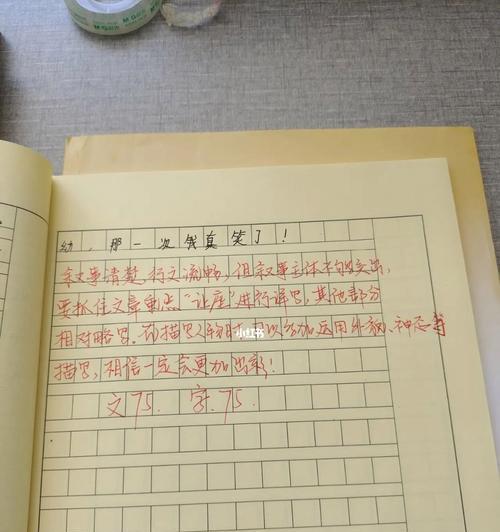 幼，那一次我真笑了！
叙事清楚，行文流畅，但叙事主体不够突出，
要抓住文章重点“让座”进行详写，其他部分
相对略写。而描写人物时可以多加运用外貌、神态等
描写，相信一定会更加出彩！
文75. 字75.
小红书